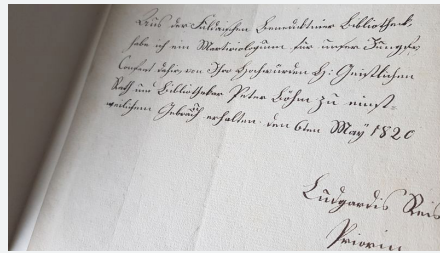 Aus der Fuldaischen Benedictiner Bibliotheck,
habe ich ein Martirologium, für unser Jungfr.
Convent dahir, von Ihro Hochwürden H: Geistlichen
Rath und Bibliothekar Peter Böhm zu einst=
weilichem Gebrauch erhalten. den 6ten May 1820
Ludgardis Reis
Priorin